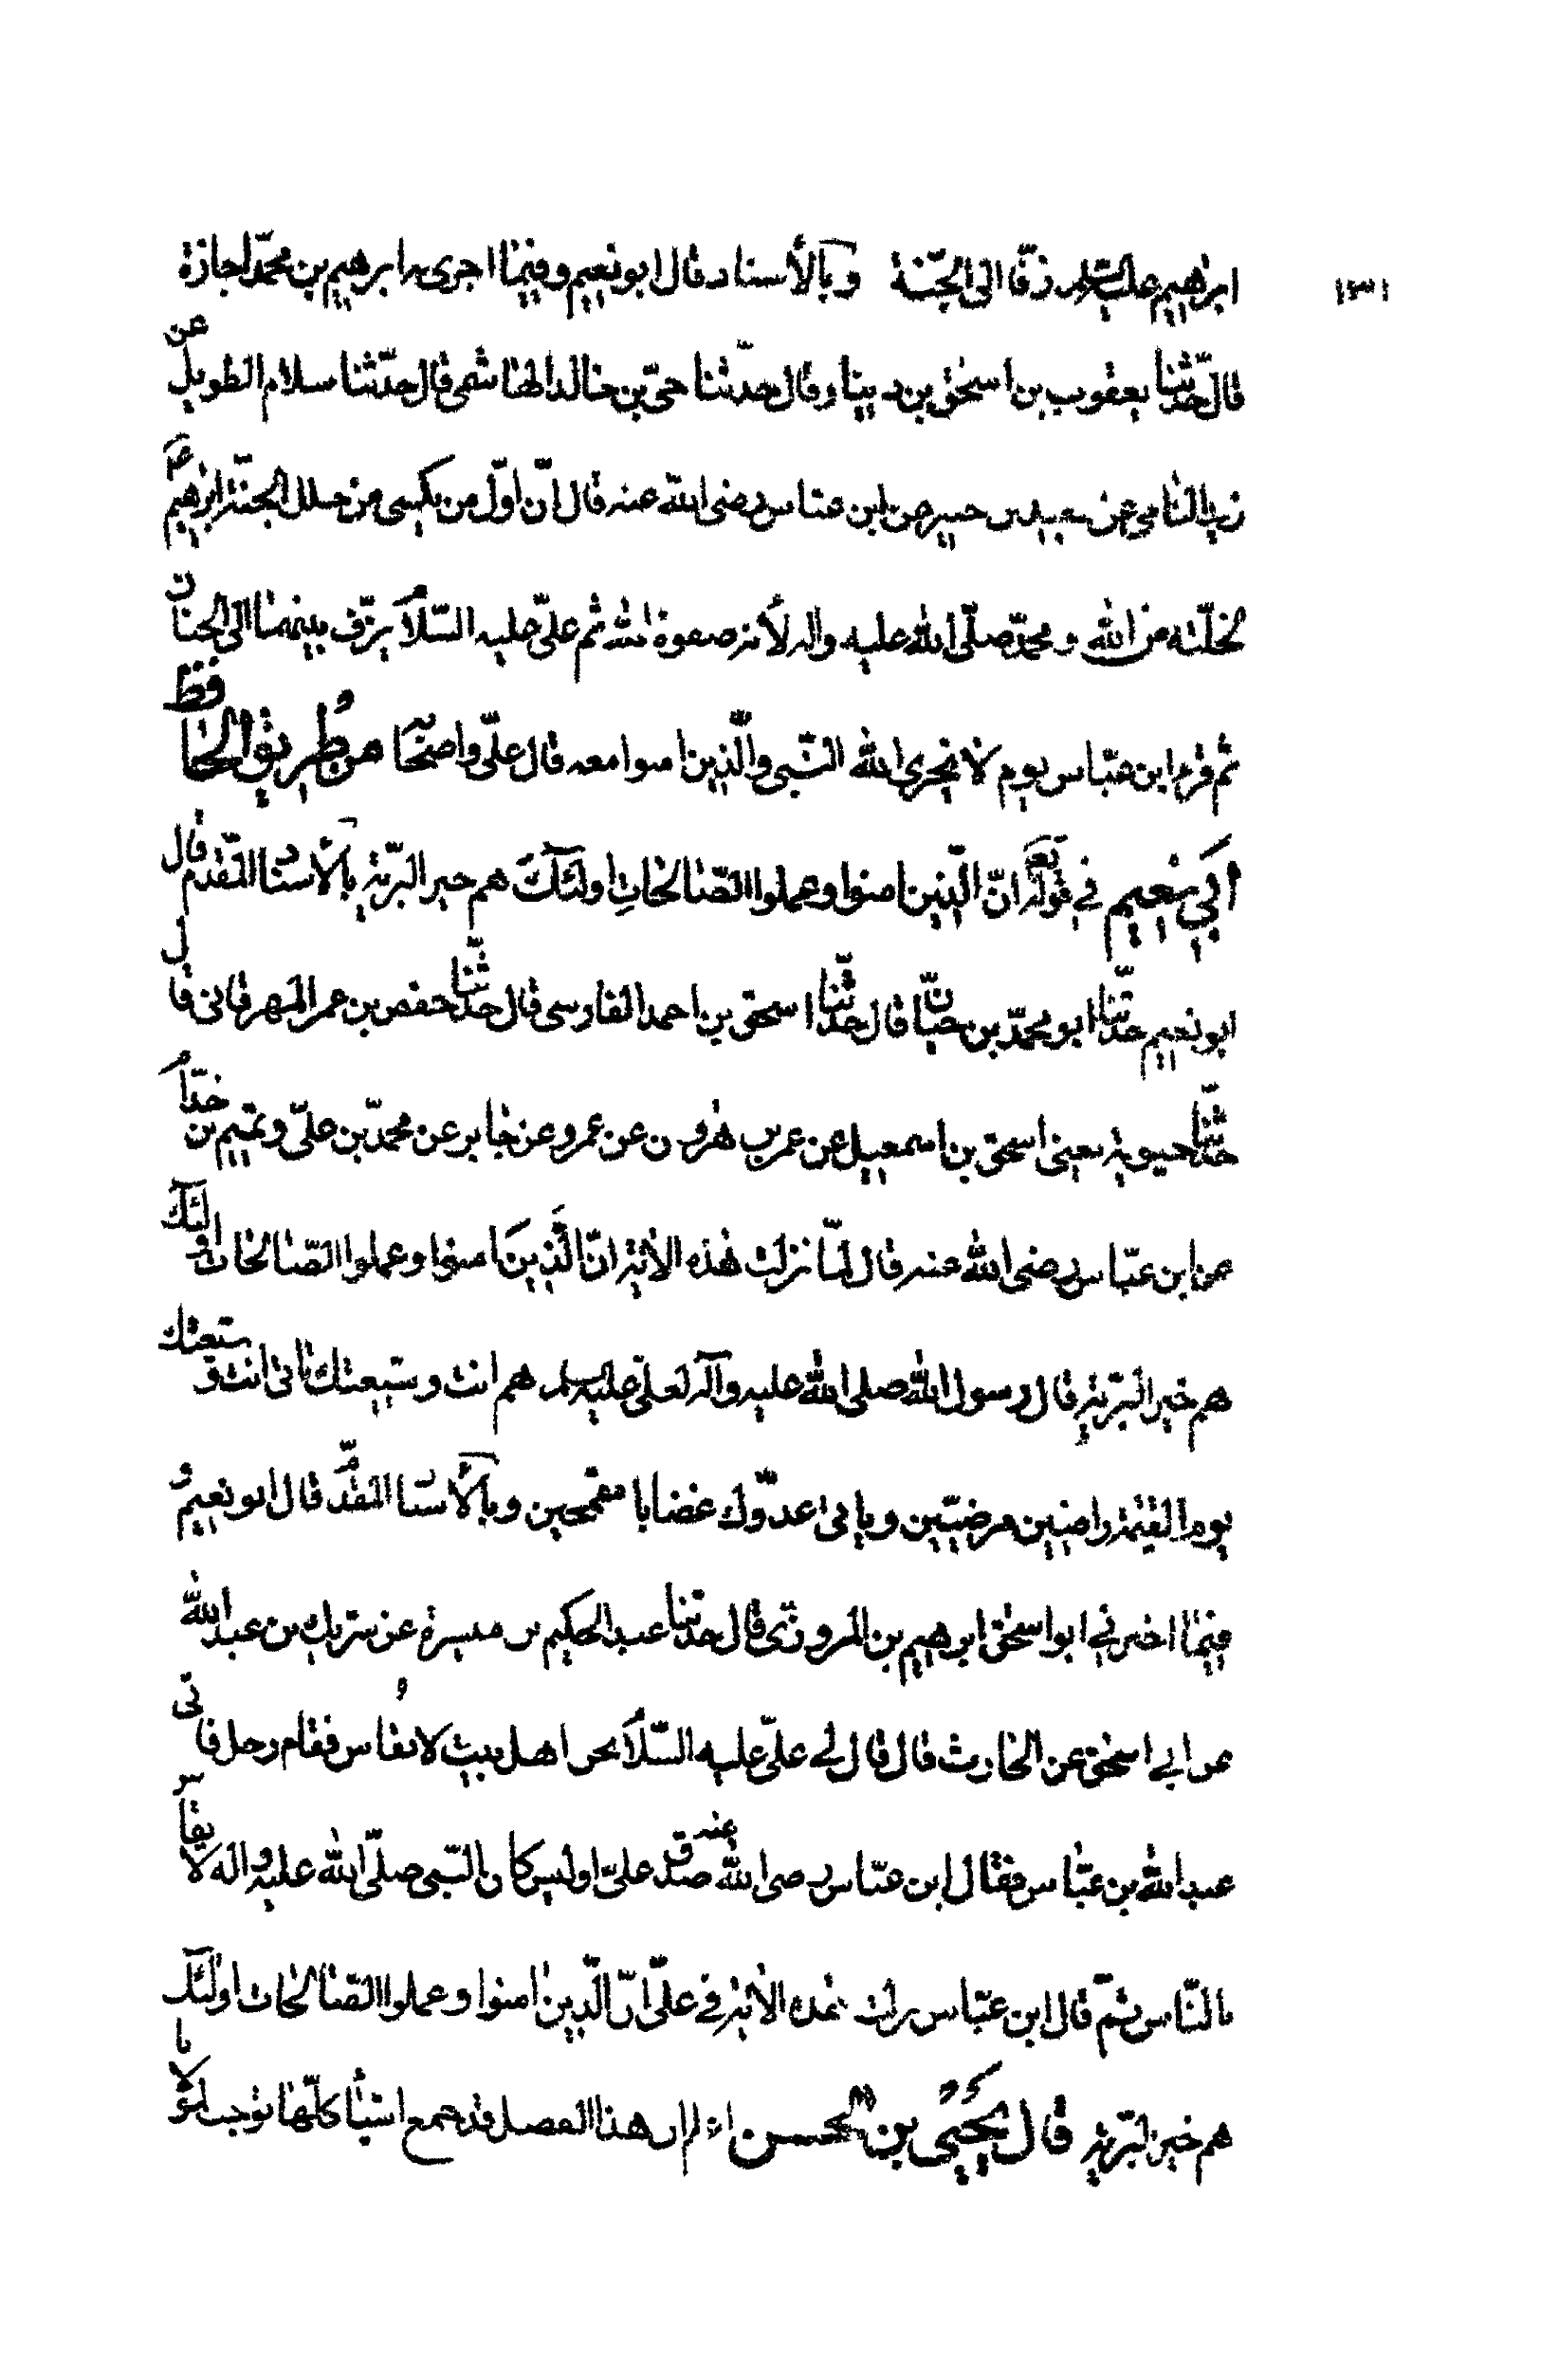 ١٣١
ابرهيم عليه السلم زفا الى الجنة وبالأسناد قال ابو نعيم وفيما اجرى به ابرهيم بن محمد اجازة
قال حدثنا يعقوب بن اسحق بن دينار قال حدثنا حى بن خالد الهاشمى قال حدثنا سلام الطويل عن
زيد النامى عن سعيد بن جبير عن ابن عباس رضى الله عنه قال ان اول من يكسى من حلل الجنة ابرهيم ع
لخلته من الله و محمد صلى الله عليه واله لأنه صفوة الله ثم على عليه السلام يزف بينهما الى الجنان
ثم قرء ابن عباس يوم لا يخزى الله النبى والذين امنوا معه قال على واصحابه ومن طريق الحافظ
أبي نعيم في قوله تعم انّ الّذين امنوا وعملوا الصّالحاتِ اولئك هم خير البريّة بالأسناد المتقدم قال
ابو نعيم حدثنا ابو محمد بن حيّان قال حدثنا اسحق بن احمد الفارسى قال حدثنا حفص بن عمر المهرقانى قال
حدثنا حيوية يعنى اسحق بن اسمعيل عن عمر بن هرون عن عمرو عن جابر عن محمد بن علىّ وتميم بن حذلم
عن ابن عباس رضى الله عنه قال لمّا نزلت هذه الاية انّ الّذين امنوا وعملوا الصّالحات اولئك
هم خير البريّة قال رسول الله صلى الله عليه وآله لعلىّ عليه السلم هم انت وشيعتك تاتى انت وشيعتك
يوم القيمة راضين مرضيّين وياتى اعدوّك غضابا مقمحين وبالأسناد المقدّم قال ابو نعيم و
فيما اخبرني ابو اسحق ابرهيم بن المروزى قال حدثنا عبد الحكيم بن ميسرة عن شريك بن عبد الله
عن ابي اسحق عن الحارث قال قال لي علىّ عليه السّلام نحن اهل بيت لا نقاس فقام رجل فاتى
عبد الله بن عبّاس فقال ابن عبّاس رضى الله عنه صدق علىّ اوليس كان النّبى صلّى الله عليه واله لا يقاس
بالنّاس ثمّ قال ابن عبّاس نزلت هذه الاية في علىّ انّ الّذين امنوا وعملوا الصّالحات اولئك
هم خير البريّة قال يحيى بن الحسن اعلم ان هذا الفصل قد جمع اشياء كلّها توجب له الولا